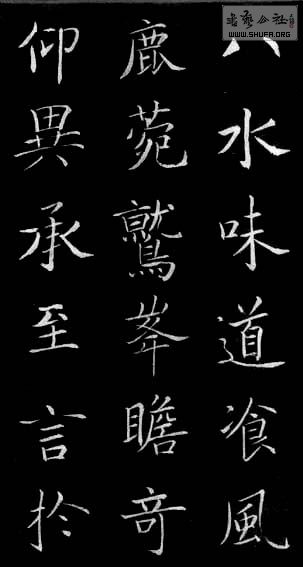 八水味道飡風
鹿菀鷲峯瞻竒
仰異承至言扵
書藝公社
WWW.SHUFA.ORG